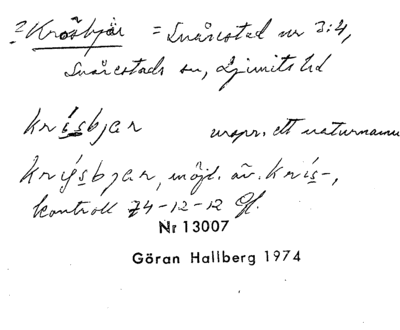 ? Krösbjär = Svårestad nr 3:4,
Svårestads sn, Ljunits hd
krísbjar urspr. ett naturnamn
krýsbjar, möjl. äv. krís-,
kontroll 74-12-12 Gf.
Nr 13007
Göran Hallberg 1974